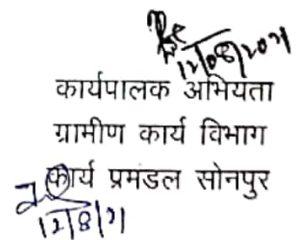 12/08/2021
कार्यपालक अभियता
ग्रामीण कार्य विभाग
कार्य प्रमंडल सोनपुर
12/8/21